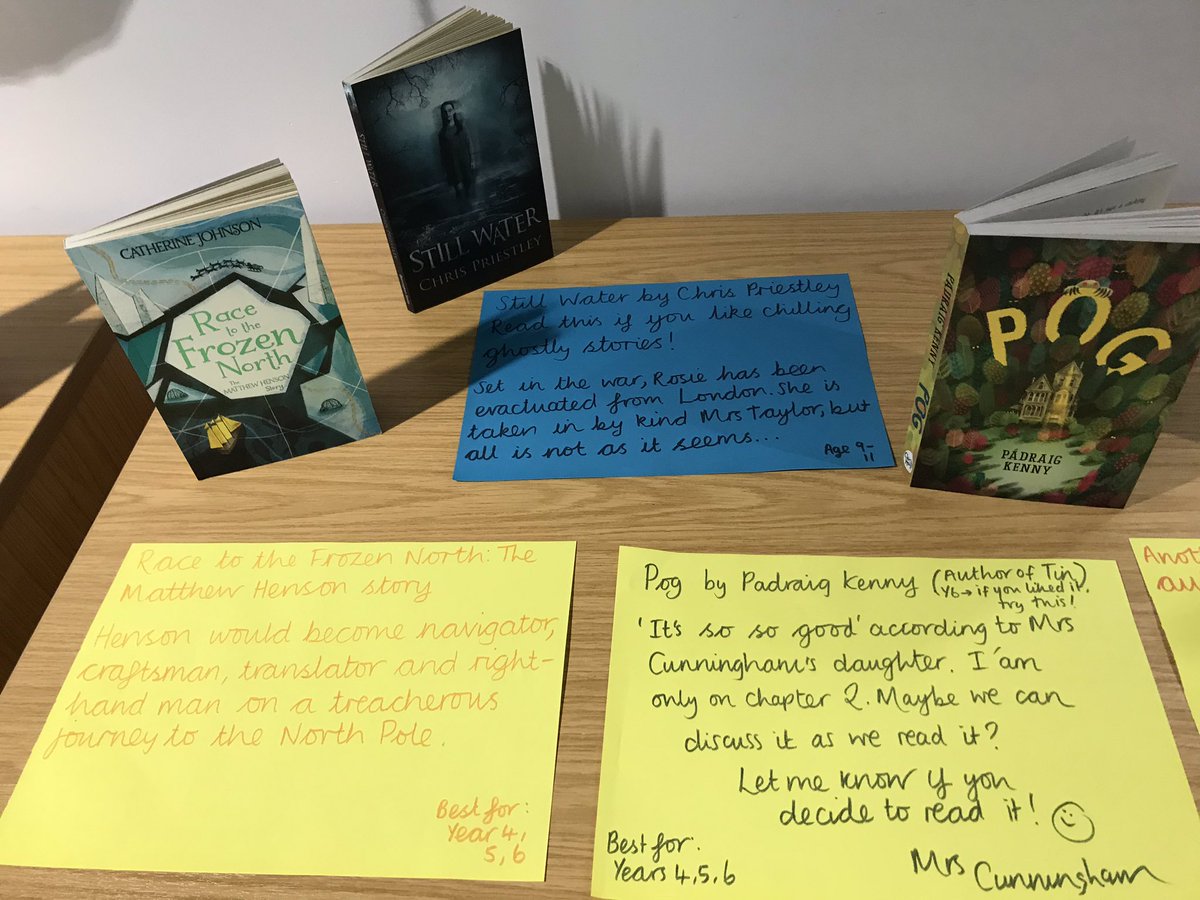 CATHERINE JOHNSON
Race
to the
Frozen
North
The
MATTHEW HENSON
Story
STILL WATER
STILL WATER
CHRIS PRIESTLEY
PÁDRAIG KENNY POG
POG
PÁDRAIG
KENNY
Still Water by Chris Priestley
Read this if you like chilling
ghostly stories!
Set in the war, Rosie has been
evactuated from London. She is
taken in by kind Mrs Taylor, but
all is not as it seems...
Age 9-
11
Race to the Frozen North: The
Matthew Henson story
Henson would become navigator,
craftsman, translator and right-
hand man on a treacherous
journey to the North Pole.
Best for:
Year 4,
5, 6
Pog by Padraig Kenny (Author of Tin)
Y6→ if you liked it,
try this!
'It's so so good' according to Mrs
Cunningham's daughter. I'am
only on chapter 2. Maybe we can
discuss it as we read it?
Let me know if you
decide to read it!
Best for:
Years 4,5,6
Mrs
Cunningham
Anot
au